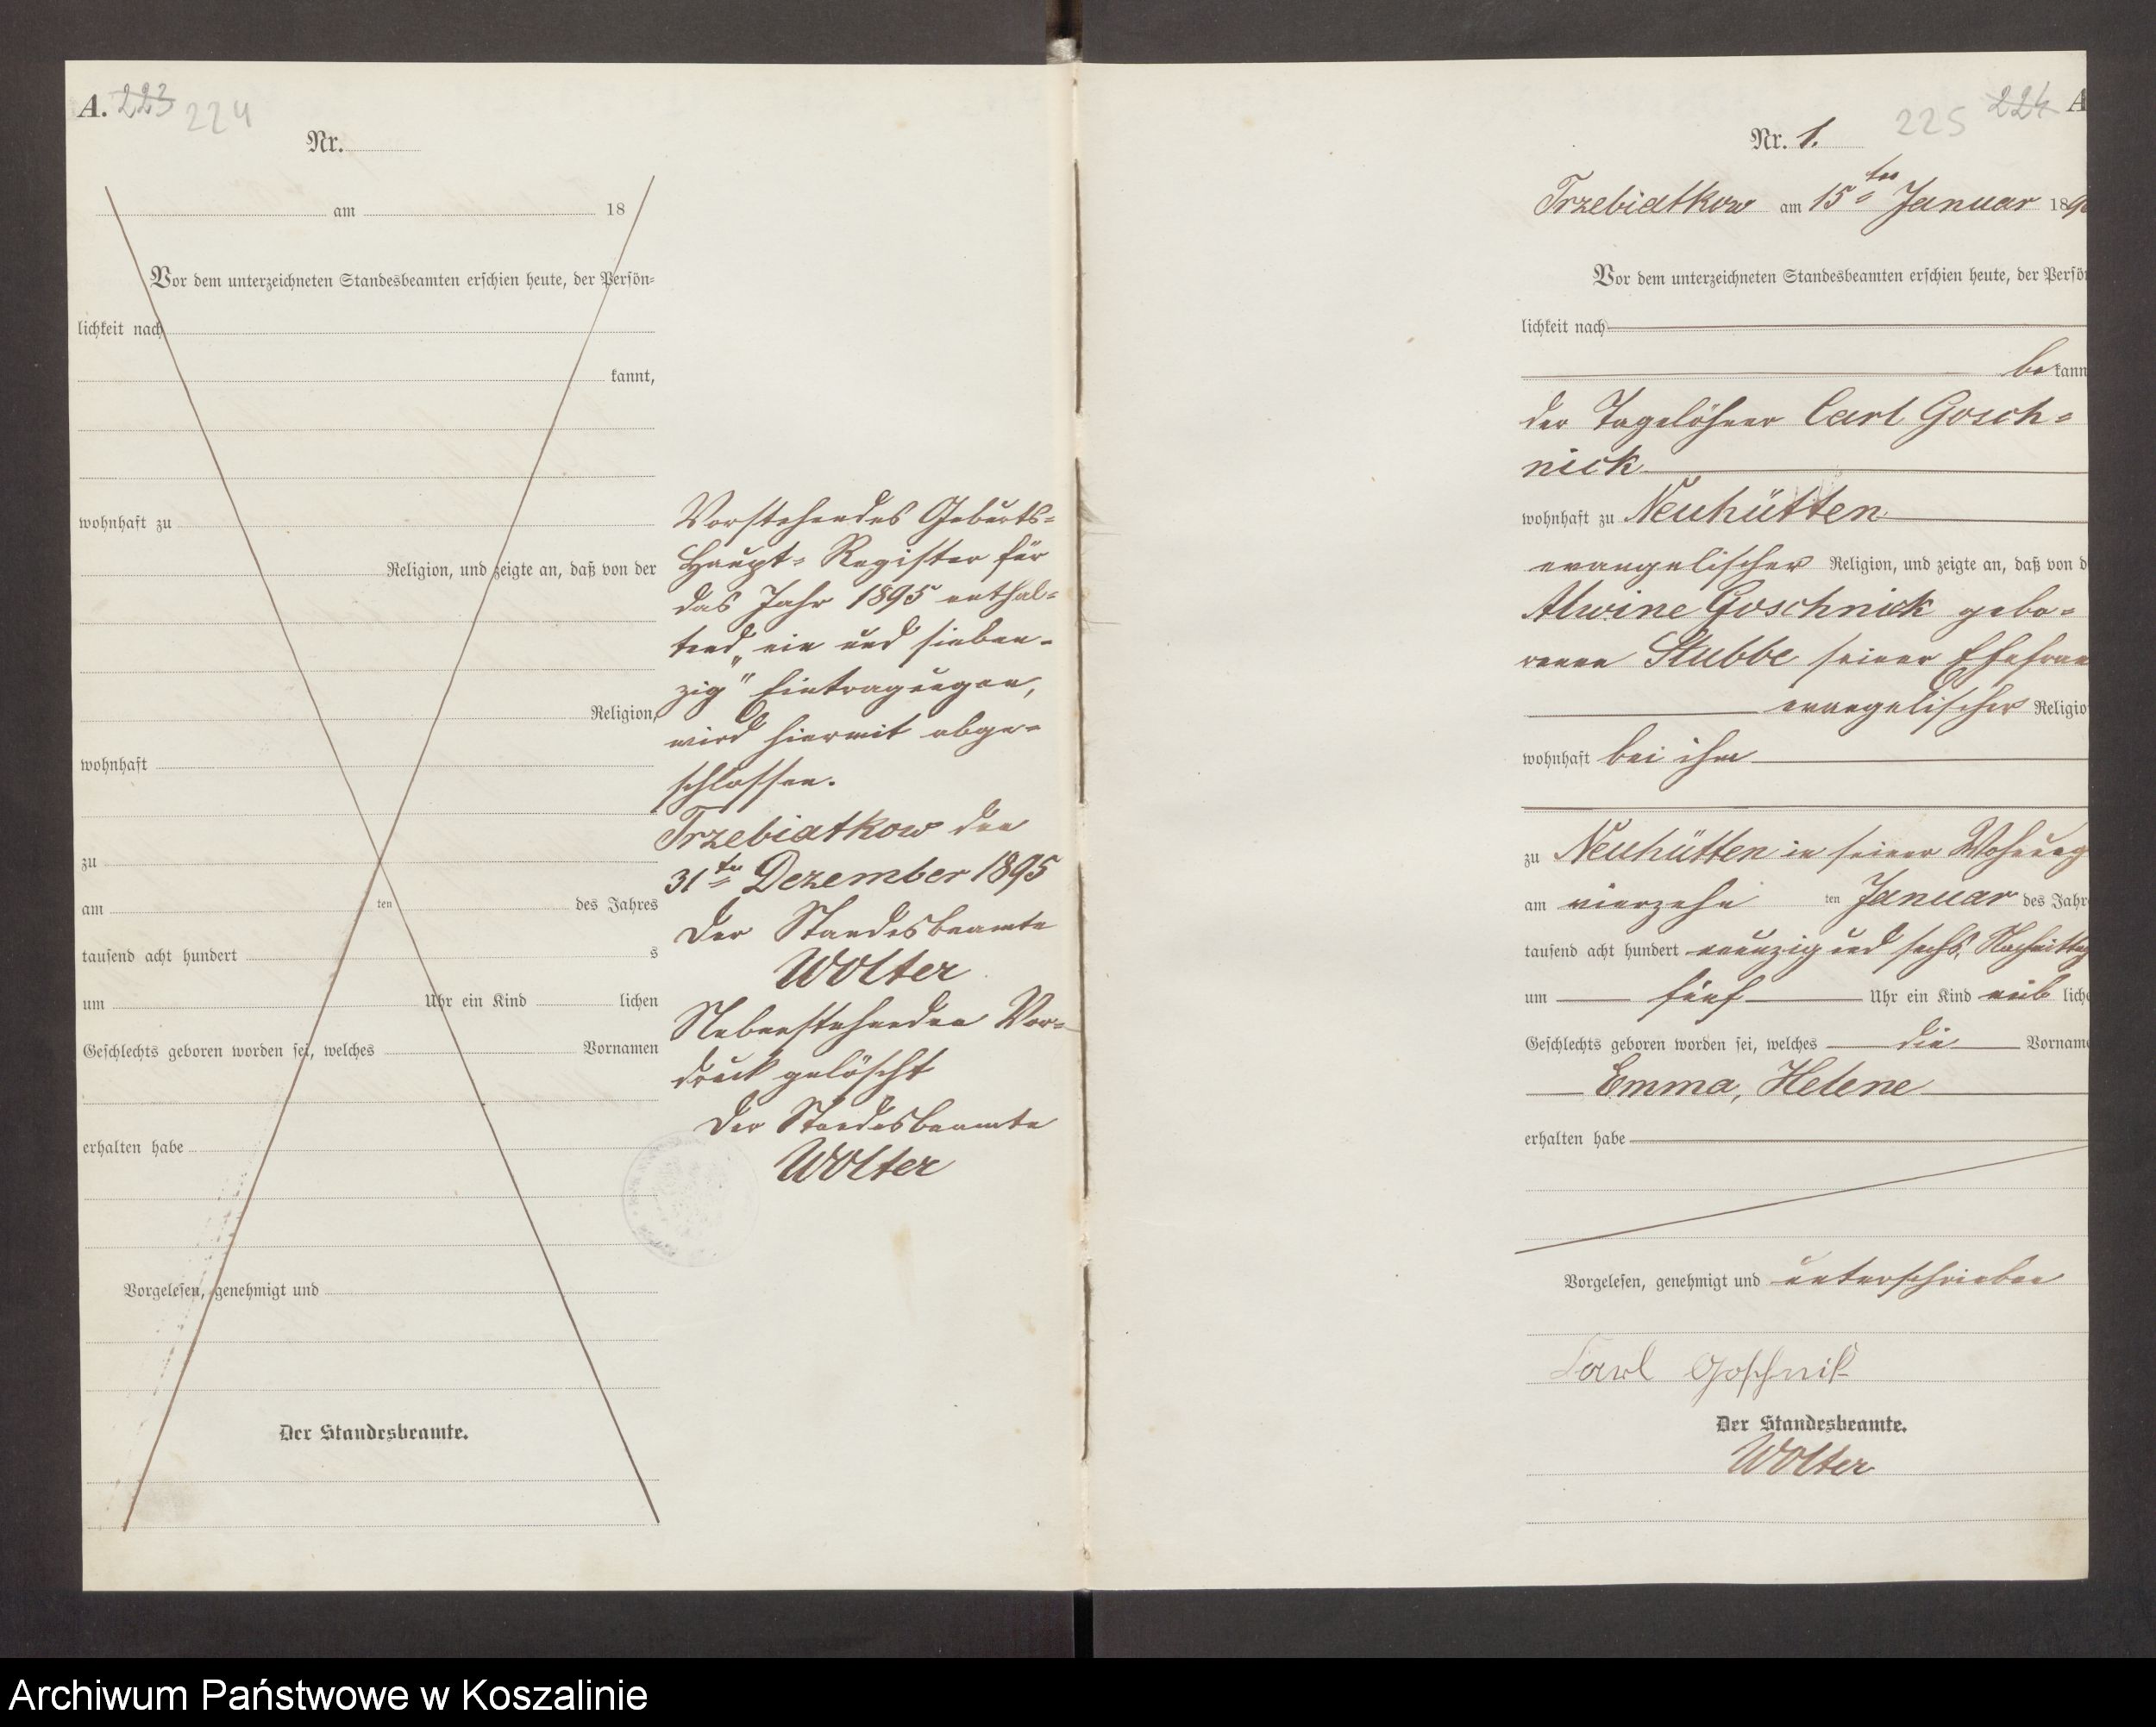 A. 223 224
Nr.
am 18
Vor dem unterzeichneten Standesbeamten erschien heute, der Persön=
lichkeit nach
kannt,
wohnhaft zu
Religion, und zeigte an, daß von der
Religion,
wohnhaft
zu
am ten des Jahres
tausend acht hundert s
um Uhr ein Kind lichen
Geschlechts geboren worden sei, welches Vornamen
erhalten habe
Vorgelesen, genehmigt und
Der Standesbeamte.
Vorstehendes Geburts=
Haupt= Register für
das Jahr 1895 enthal=
tend „ein und sieben=
zig" Eintragungen,
wird hiermit abge=
schlossen.
Trzebiatkow den
31ten Dezember 1895
Der Standesbeamte
Wolter
Nebenstehenden Vor=
druck gelöscht
Der Standesbeamte
Wolter
225 224 A
Nr. 1.
Trzebiatkow am 15ten Januar 189
Vor dem unterzeichneten Standesbeamten erschien heute, der Persö
lichkeit nach
be kann
der Tagelöhner Carl Gosch=
nick
wohnhaft zu Neuhütten
evangelischer Religion, und zeigte an, daß von d
Alwine Goschnick gebo=
renen Stubbe seiner Ehefrau
evangelischer Religio
wohnhaft bei ihm
zu Neuhütten in seiner Wohnung
am vierzehn ten Januar des Jahr
tausend acht hundert neunzig und sechs, Nachmittag
um fünf Uhr ein Kind weib liche
Geschlechts geboren worden sei, welches die Vorname
Emma, Helene
erhalten habe
Vorgelesen, genehmigt und unterschrieben
Carl Goschnik
Der Standesbeamte.
Wolter
Archiwum Państwowe w Koszalinie